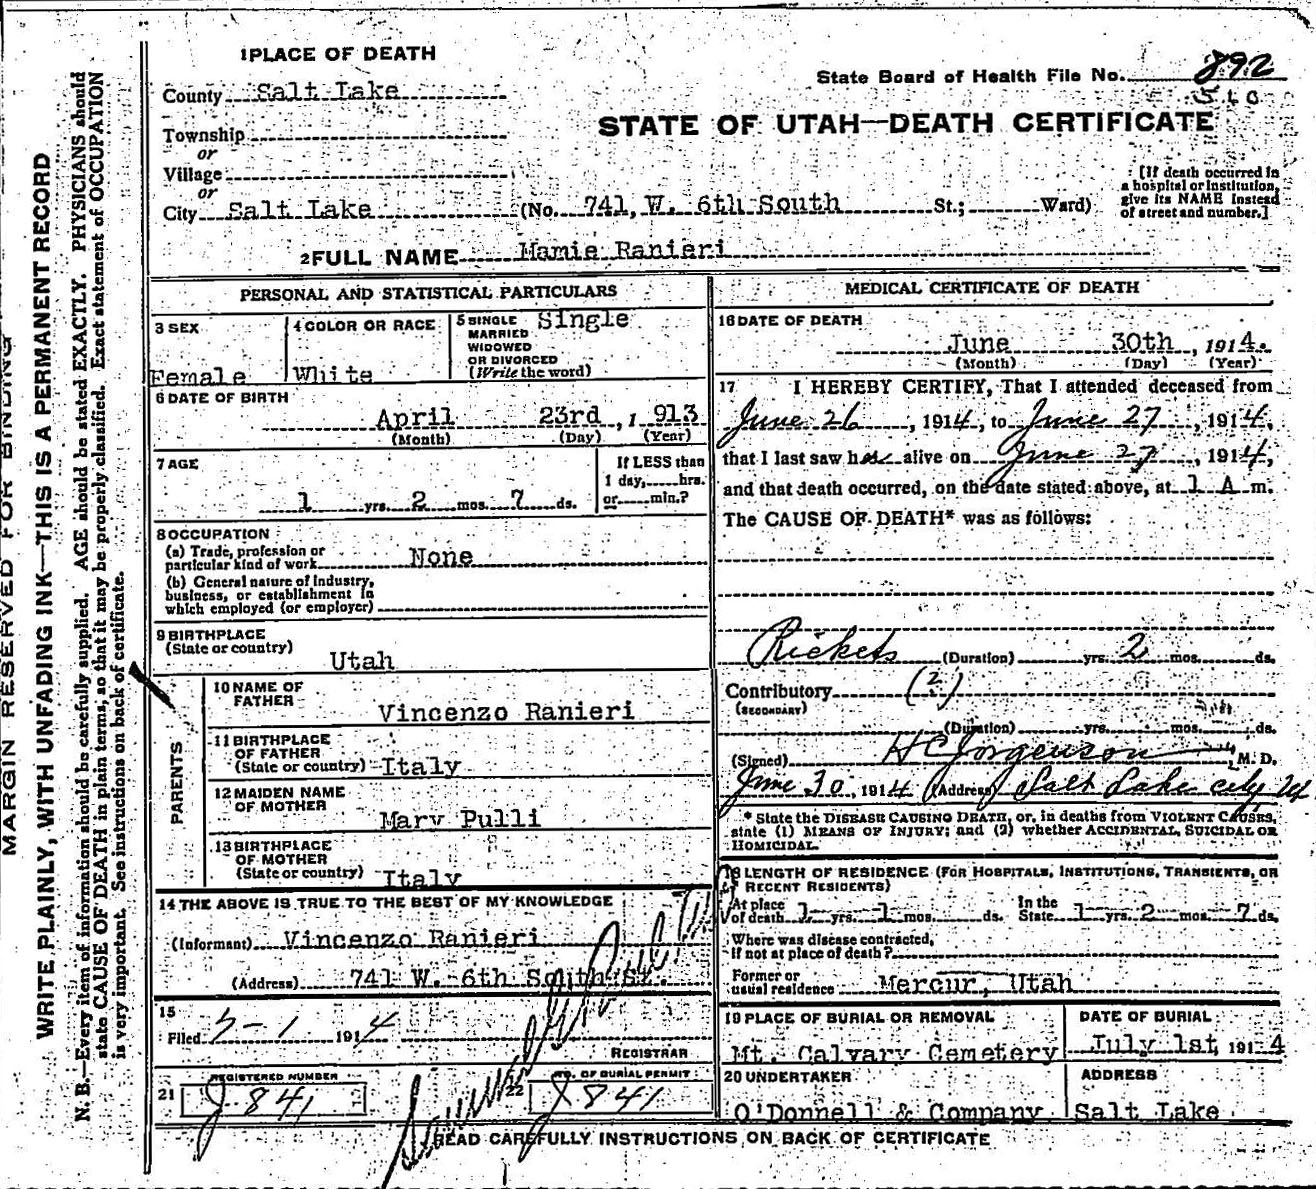 MARGIN RESERVED FOR BINDING
WRITE PLAINLY, WITH UNFADING INK—THIS IS A PERMANENT RECORD
N. B.—Every item of information should be carefully supplied. AGE should be stated EXACTLY. PHYSICIANS should
state CAUSE OF DEATH in plain terms, so that it may be properly classified. Exact statement of OCCUPATION
is very important. See instructions on back of certificate.
1 PLACE OF DEATH
County Salt Lake
Township
or
Village
or
City Salt Lake (No. 741, W. 6th South St.; Ward)
State Board of Health File No. 892
S L C
STATE OF UTAH—DEATH CERTIFICATE
[If death occurred in
a hospital or institution,
give its NAME instead
of street and number.]
2 FULL NAME Mamie Ranieri
PERSONAL AND STATISTICAL PARTICULARS
3 SEX
Female
4 COLOR OR RACE
White
5 SINGLE Single
MARRIED
WIDOWED
OR DIVORCED
(Write the word)
6 DATE OF BIRTH
April 23rd, 1913
(Month) (Day) (Year)
7 AGE
1 yrs. 2 mos. 7 ds.
If LESS than
1 day, hrs.
or min.?
8 OCCUPATION
(a) Trade, profession or
particular kind of work None
(b) General nature of industry,
business, or establishment in
which employed (or employer)
9 BIRTHPLACE
(State or country)
Utah
PARENTS
10 NAME OF
FATHER
Vincenzo Ranieri
11 BIRTHPLACE
OF FATHER
(State or country) Italy
12 MAIDEN NAME
OF MOTHER
Mary Pulli
13 BIRTHPLACE
OF MOTHER
(State or country) Italy
14 THE ABOVE IS TRUE TO THE BEST OF MY KNOWLEDGE
(Informant) Vincenzo Ranieri
(Address) 741 W. 6th South St.
15
Filed 7-1 1914
REGISTRAR
21 REGISTERED NUMBER
J 841
22 NO. OF BURIAL PERMIT
J 841
MEDICAL CERTIFICATE OF DEATH
16 DATE OF DEATH
June 30th, 1914.
(Month) (Day) (Year)
17 I HEREBY CERTIFY, That I attended deceased from
June 26, 1914, to June 27, 1914,
that I last saw her alive on June 27, 1914,
and that death occurred, on the date stated above, at 1 A m.
The CAUSE OF DEATH* was as follows:
Rickets (Duration) yrs. 2 mos. ds.
Contributory (?)
(SECONDARY)
(Duration) yrs. mos. ds.
(Signed) H C Jorgenson M. D.
June 30, 1914 (Address) Salt Lake City, Ut
* State the DISEASE CAUSING DEATH, or, in deaths from VIOLENT CAUSES,
state (1) MEANS OF INJURY; and (2) whether ACCIDENTAL, SUICIDAL OR
HOMICIDAL.
18 LENGTH OF RESIDENCE (FOR HOSPITALS, INSTITUTIONS, TRANSIENTS, OR
RECENT RESIDENTS)
At place
of death 1 yrs. 1 mos. ds. In the
State 1 yrs. 2 mos. 7 ds.
Where was disease contracted,
If not at place of death?
Former or
usual residence Mercur, Utah
19 PLACE OF BURIAL OR REMOVAL
Mt. Calvary Cemetery
DATE OF BURIAL
July 1st, 1914
20 UNDERTAKER
O'Donnell & Company
ADDRESS
Salt Lake
READ CAREFULLY INSTRUCTIONS ON BACK OF CERTIFICATE